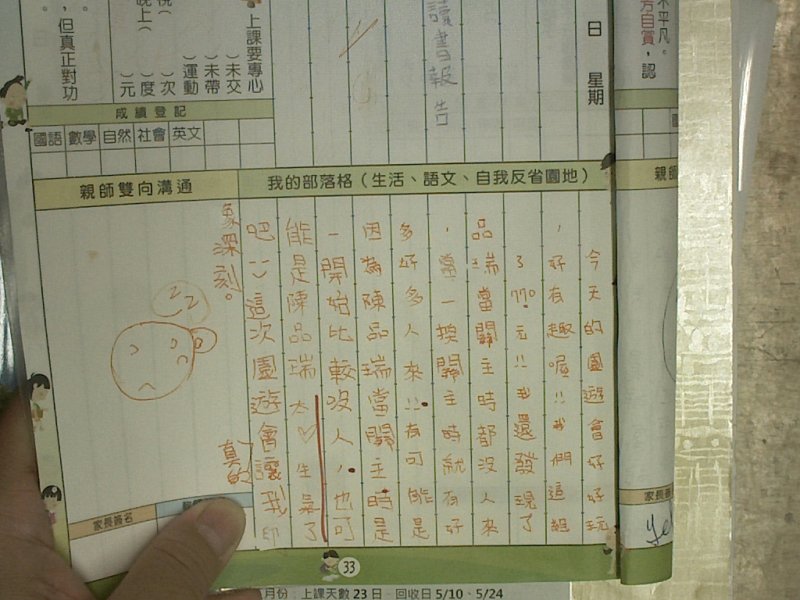 不平凡。
方自賞，認
日 星期
讀書報告
上課要專心
( )未交
( )未帶
( )運動
( )次
( )度
( )元
，但真正對功
成績登記
國語 數學 自然 社會 英文
親師雙向溝通
我的部落格（生活、語文、自我反省園地）
今天的園遊會好好玩
，好有趣喔!!我們這組
了770元!!我還發現了
品瑞當關主時都沒人來
，當一換關主時就有好
多好多人來!!有可能是
因為陳品瑞當關主時是
一開始比較沒人，也可
能是陳品瑞太♡生氣了
吧!!這次園遊會讓我印
象深刻。
真的
家長簽名
家長簽
33
月份：上課天數 23 日、回收日 5/10、5/24